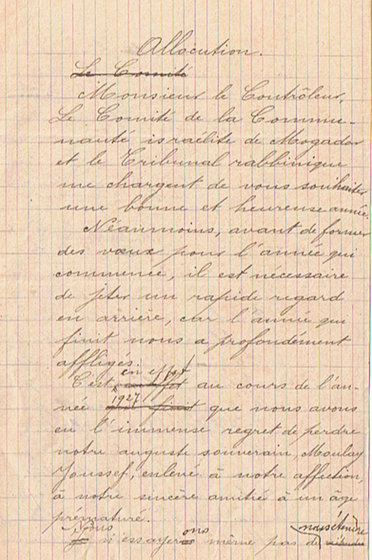 Allocution.
Le Comité
Monsieur le Contrôleur,
Le Comité de la Commu-
nauté israélite de Mogador
et le Tribunal rabbinique
me chargent de vous souhaiter
une bonne et heureuse année.
Néanmoins, avant de former
des vœux pour l'année qui
commence, il est nécessaire
de jeter un rapide regard
en arrière, car l'année qui
finit nous a profondément
affligés.
en effet
C'est au cours de l'an-
née 1927 que nous avons
eu l'immense regret de perdre
notre auguste souverain, Moulay
Youssef, enlevé à notre affection,
à notre sincère amitié à un âge
prématuré.
Nous n'essayerons même pas de nous étendre